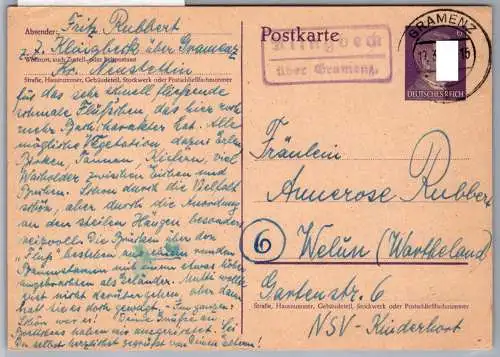 Absender: Fritz Rubbert
z. Z. Klingbeck über Gramenz
Wohnort, auch Zustell- oder Leitpostamt
Kr. Neustettin
Straße, Hausnummer, Gebäudeteil, Stockwerk oder Postschließfachnummer
für das sehr schnell fließende
schmale Flüßchen das hier noch
mehr Bachcharakter hat. Alle
mögliche Vegetation dazu: Erlen
Birken, Tannen, Kiefern, viel
Wacholder zwischen Eichen und
Buchen. Schon durch die Vielfalt
schön, aber durch die Anordnung
an den steilen Hängen besonders
reizvoll. Die Brücken über den
"Fluß" bestehen aus einem runden
Baumstamm mit einem etwas höher
angebrachten als Geländer. Mutti wollte
erst nicht darübergehen, aber dann
hat sie es doch gewagt.
Schön war es! Deine Grüße an
haben wir ausgerichtet. Sei
Du selbst herzlichst gegrüßt von Deinen Eltern!
Postkarte
Klingbeck
über Gramenz
GRAMENZ
15
6
DEUTSCHES REICH
Fräulein
Annerose Rubbert
6 Welun (Wartheland)
Gartenstr. 6
Straße, Hausnummer, Gebäudeteil, Stockwerk oder Postschließfachnummer
NSV-Kinderhort